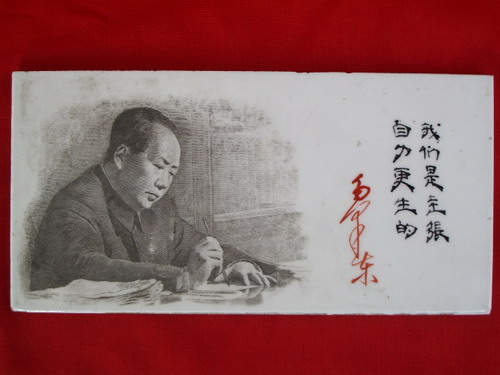 我们是主張
自力更生的
毛泽东